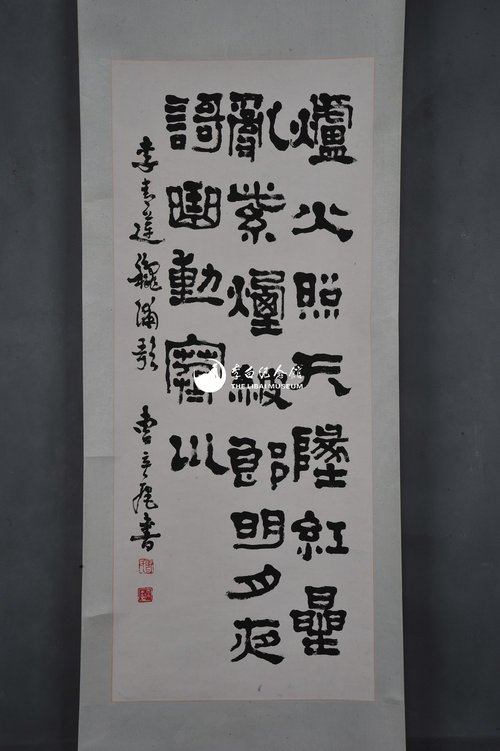 爐火照天墬紅曐
亂紫煙赧郎明月夜
謌曲動寒川
李青蓮龝浦歌 曹立庵書
李白纪念馆
THE LIBAI MUSEUM